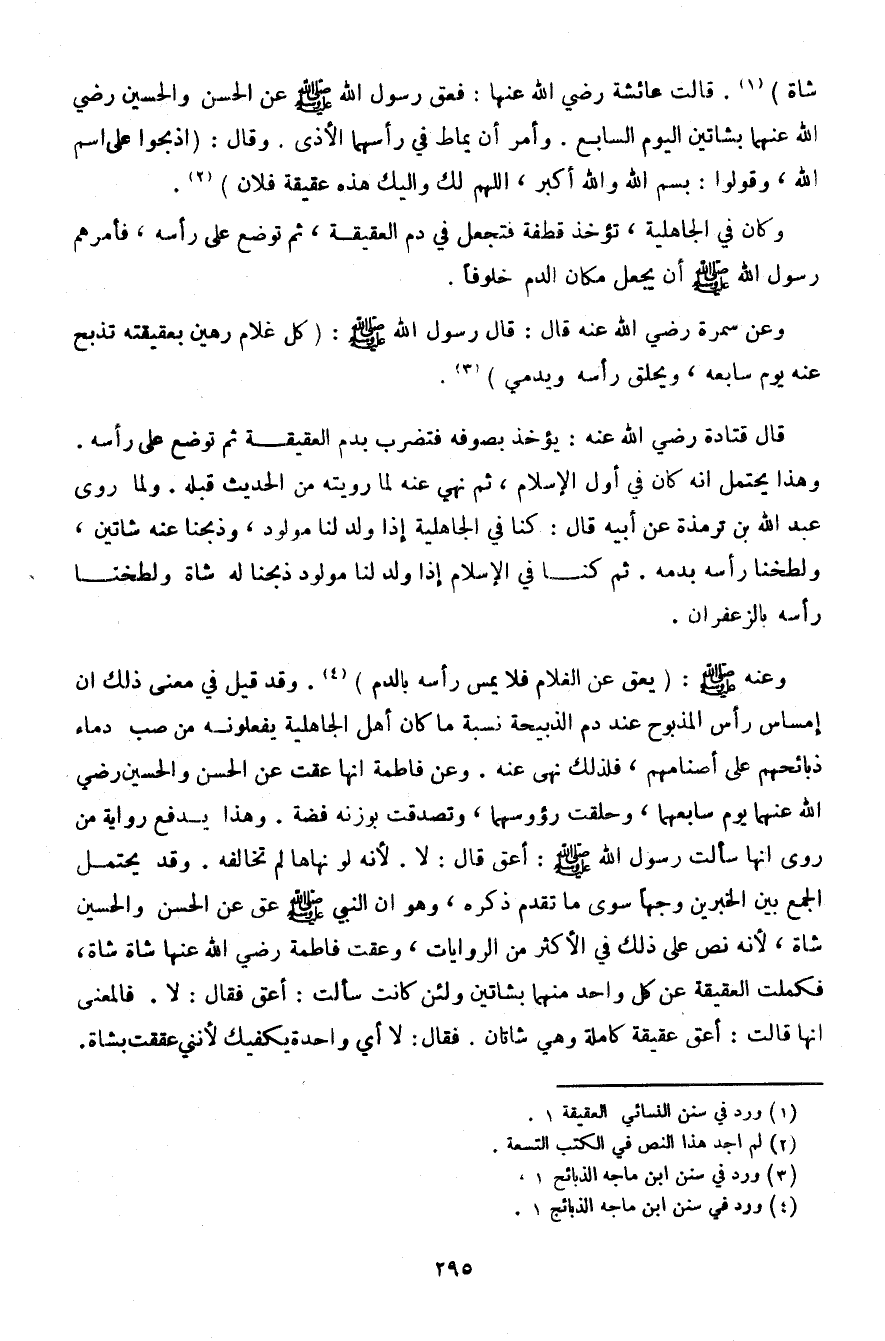 شاة ) (١) . قالت عائشة رضي الله عنها : فعق رسول الله ﷺ عن الحسن والحسين رضي
الله عنهما بشاتين اليوم السابع . وأمر أن يماط في رأسهما الأذى . وقال : ( اذبحوا على اسم
الله ، وقولوا : بسم الله والله أكبر ، اللهم لك واليك هذه عقيقة فلان ) (٢) .
وكان في الجاهلية ، تؤخذ قطفة فتجعل في دم العقيقة ، ثم توضع على رأسه ، فأمرهم
رسول الله ﷺ أن يجعل مكان الدم خلوفاً .
وعن سمرة رضي الله عنه قال : قال رسول الله ﷺ : ( كل غلام رهين بعقيقته تذبح
عنه يوم سابعه ، ويحلق رأسه ويدمي ) (٣) .
قال قتادة رضي الله عنه : يؤخذ بصوفه فتضرب بدم العقيقة ثم توضع على رأسه .
وهذا يحتمل انه كان في أول الإسلام ، ثم نهي عنه لما رويته من الحديث قبله . ولما روى
عبد الله بن ترمذة عن أبيه قال : كنا في الجاهلية إذا ولد لنا مولود ، وذبحنا عنه شاتين ،
ولطخنا رأسه بدمه . ثم كنا في الإسلام إذا ولد لنا مولود ذبحنا له شاة ولطخنا
رأسه بالزعفران .
وعنه ﷺ : ( يعق عن الغلام فلا يمس رأسه بالدم ) (٤) . وقد قيل في معنى ذلك ان
إمساس رأس المذبوح عند دم الذبيحة نسبة ما كان أهل الجاهلية يفعلونه من صب دماء
ذبائحهم على أصنامهم ، فلذلك نهى عنه . وعن فاطمة انها عقت عن الحسن والحسين رضي
الله عنهما يوم سابعهما ، وحلقت رؤوسهما ، وتصدقت بوزنه فضة . وهذا يدفع رواية من
روى انها سألت رسول الله ﷺ : أعق قال : لا . لأنه لو نهاها لم تخالفه . وقد يحتمل
الجمع بين الخبرين وجهاً سوى ما تقدم ذكره ، وهو ان النبي ﷺ عق عن الحسن والحسين
شاة ، لأنه نص على ذلك في الأكثر من الروايات ، وعقت فاطمة رضي الله عنها شاة شاة ،
فكملت العقيقة عن كل واحد منهما بشاتين ولئن كانت سألت : أعق فقال : لا . فالمعنى
انها قالت : أعق عقيقة كاملة وهي شاتان . فقال : لا أي واحدة يكفيك لأنني عققت بشاة .
(١) ورد في سنن النسائي العقيقة ١ .
(٢) لم اجد هذا النص في الكتب التسعة .
(٣) ورد في سنن ابن ماجه الذبائح ١ .
(٤) ورد في سنن ابن ماجه الذبائح ١ .
٢٩٥